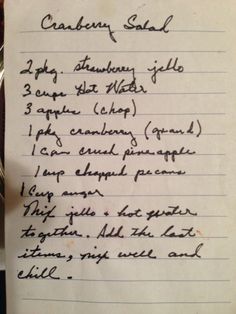 Cranberry Salad
2 pkg. strawberry jello
3 cups Hot Water
3 apples (chop)
1 pkg cranberry (grand)
1 can crush pineapple
1 cup chopped pecans
1 Cup sugar
Mix jello + hot water
together. Add the last
items, mix well and
chill.